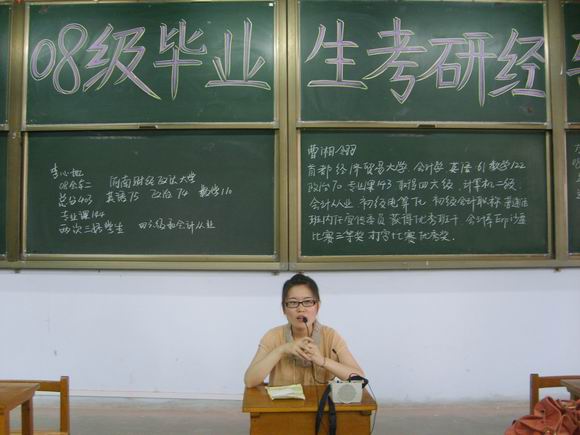 08级毕业生考研经
08会本二 河南财经政法大学
总分403 英语75 政治74 数学110
专业课144
两次三好学生 四六级和会计从业
首都经济贸易大学 会计学 英语61 数学122
政治70 专业课143 取得四六级、计算机二级、
会计从业、初级电算化、初级会计职称、普通话
班内任宣传委员 获得优秀班干、会计信Erp沙盘
比赛三等奖 打字比赛优秀奖。